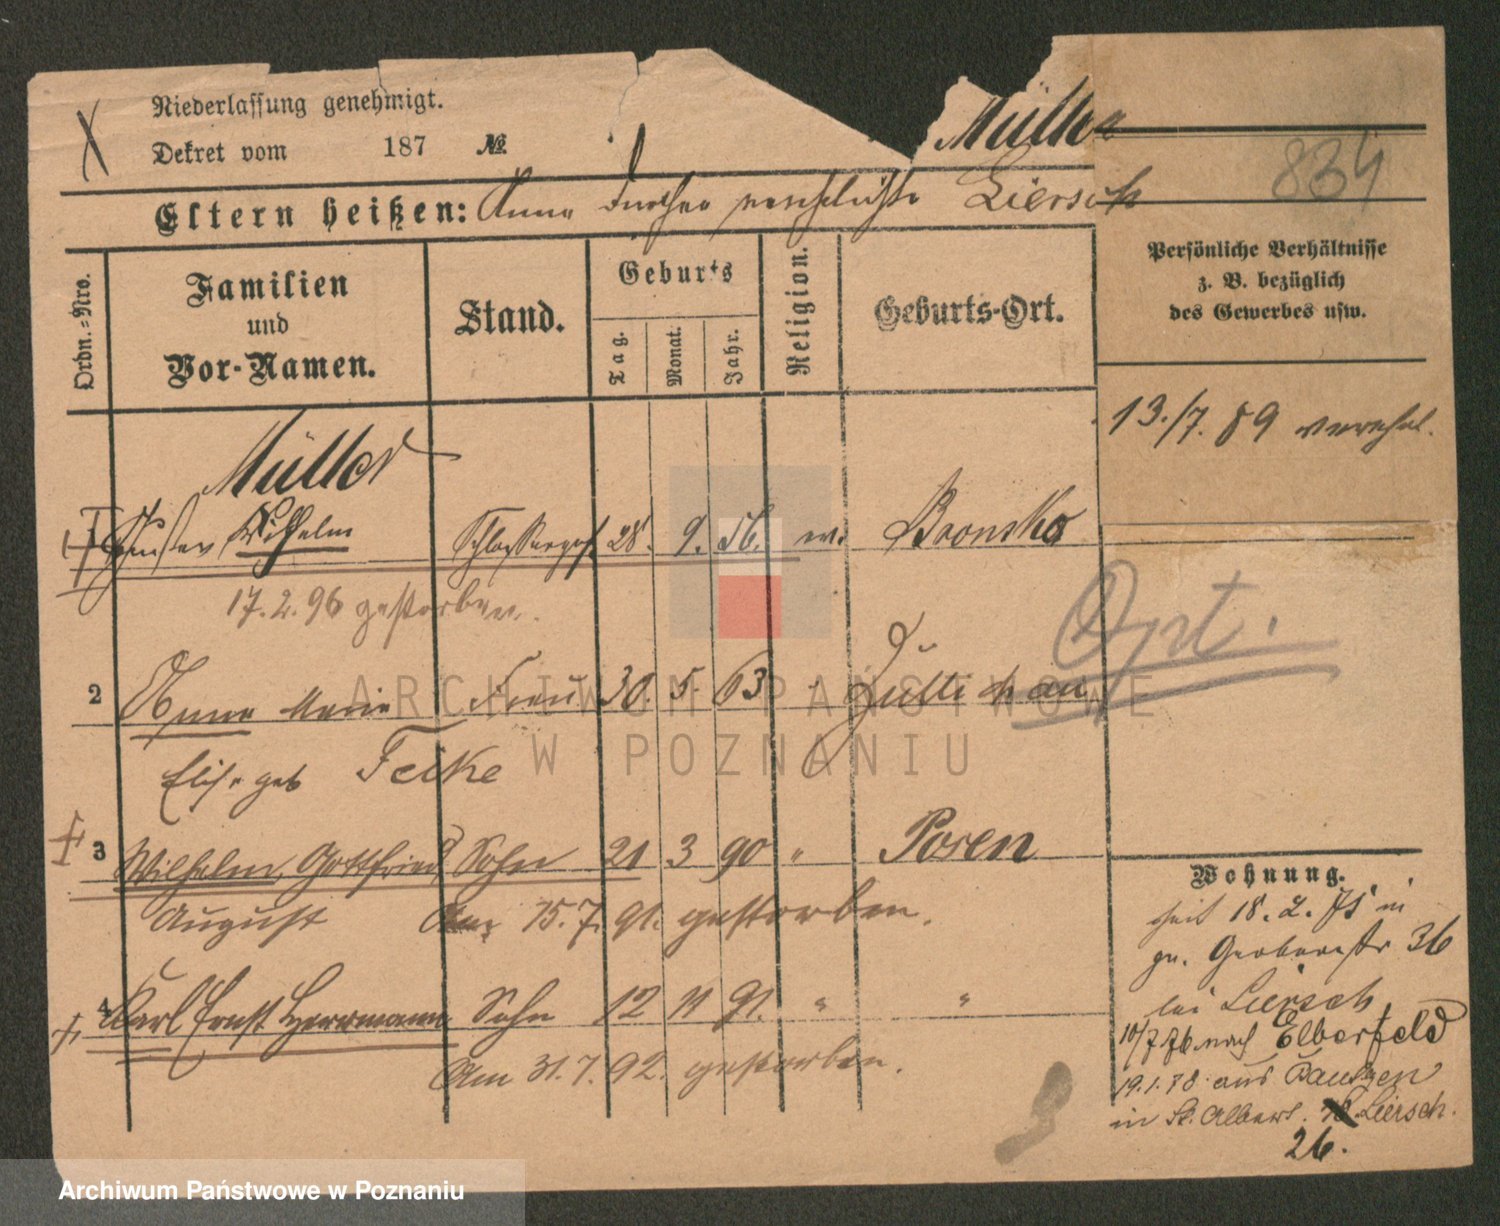 Niederlassung genehmigt.
Dekret vom 187 №
Müller
834
Eltern heißen: Anna Dorothea verehelichte Liersch
Ordn.=Nro.
Familien
und
Vor-Namen.
Stand.
Geburts
Tag.
Monat.
Jahr.
Religion.
Geburts-Ort.
Persönliche Verhältnisse
z. B. bezüglich
des Gewerbes usw.
13./7. 89 verehel.
Müller
1 Gustav Wilhelm Schlosserges. 28. 9. 56. ev. Bronsko
17.2.96 gestorben.
Opt.
2 Anna Marie Frau 30. 5. 63 " Züllichau
Elise geb Felke
3 Wilhelm, Gottfried Sohn 21 3 90 " Posen
August Am 15.7.91. gestorben.
4 Karl Ernst Herrmann Sohn 12 11 91. " "
Am 31.7.92. gestorben.
Wohnung.
seit 18. 2. 75 in
gr. Gerberstr 36
bei Liersch
10/7.76. nach Elberfeld
19.1.78. aus Bautzen
in St. Albert. Liersch.
26.
ARCHIWUM PAŃSTWOWE
W POZNANIU
Archiwum Państwowe w Poznaniu